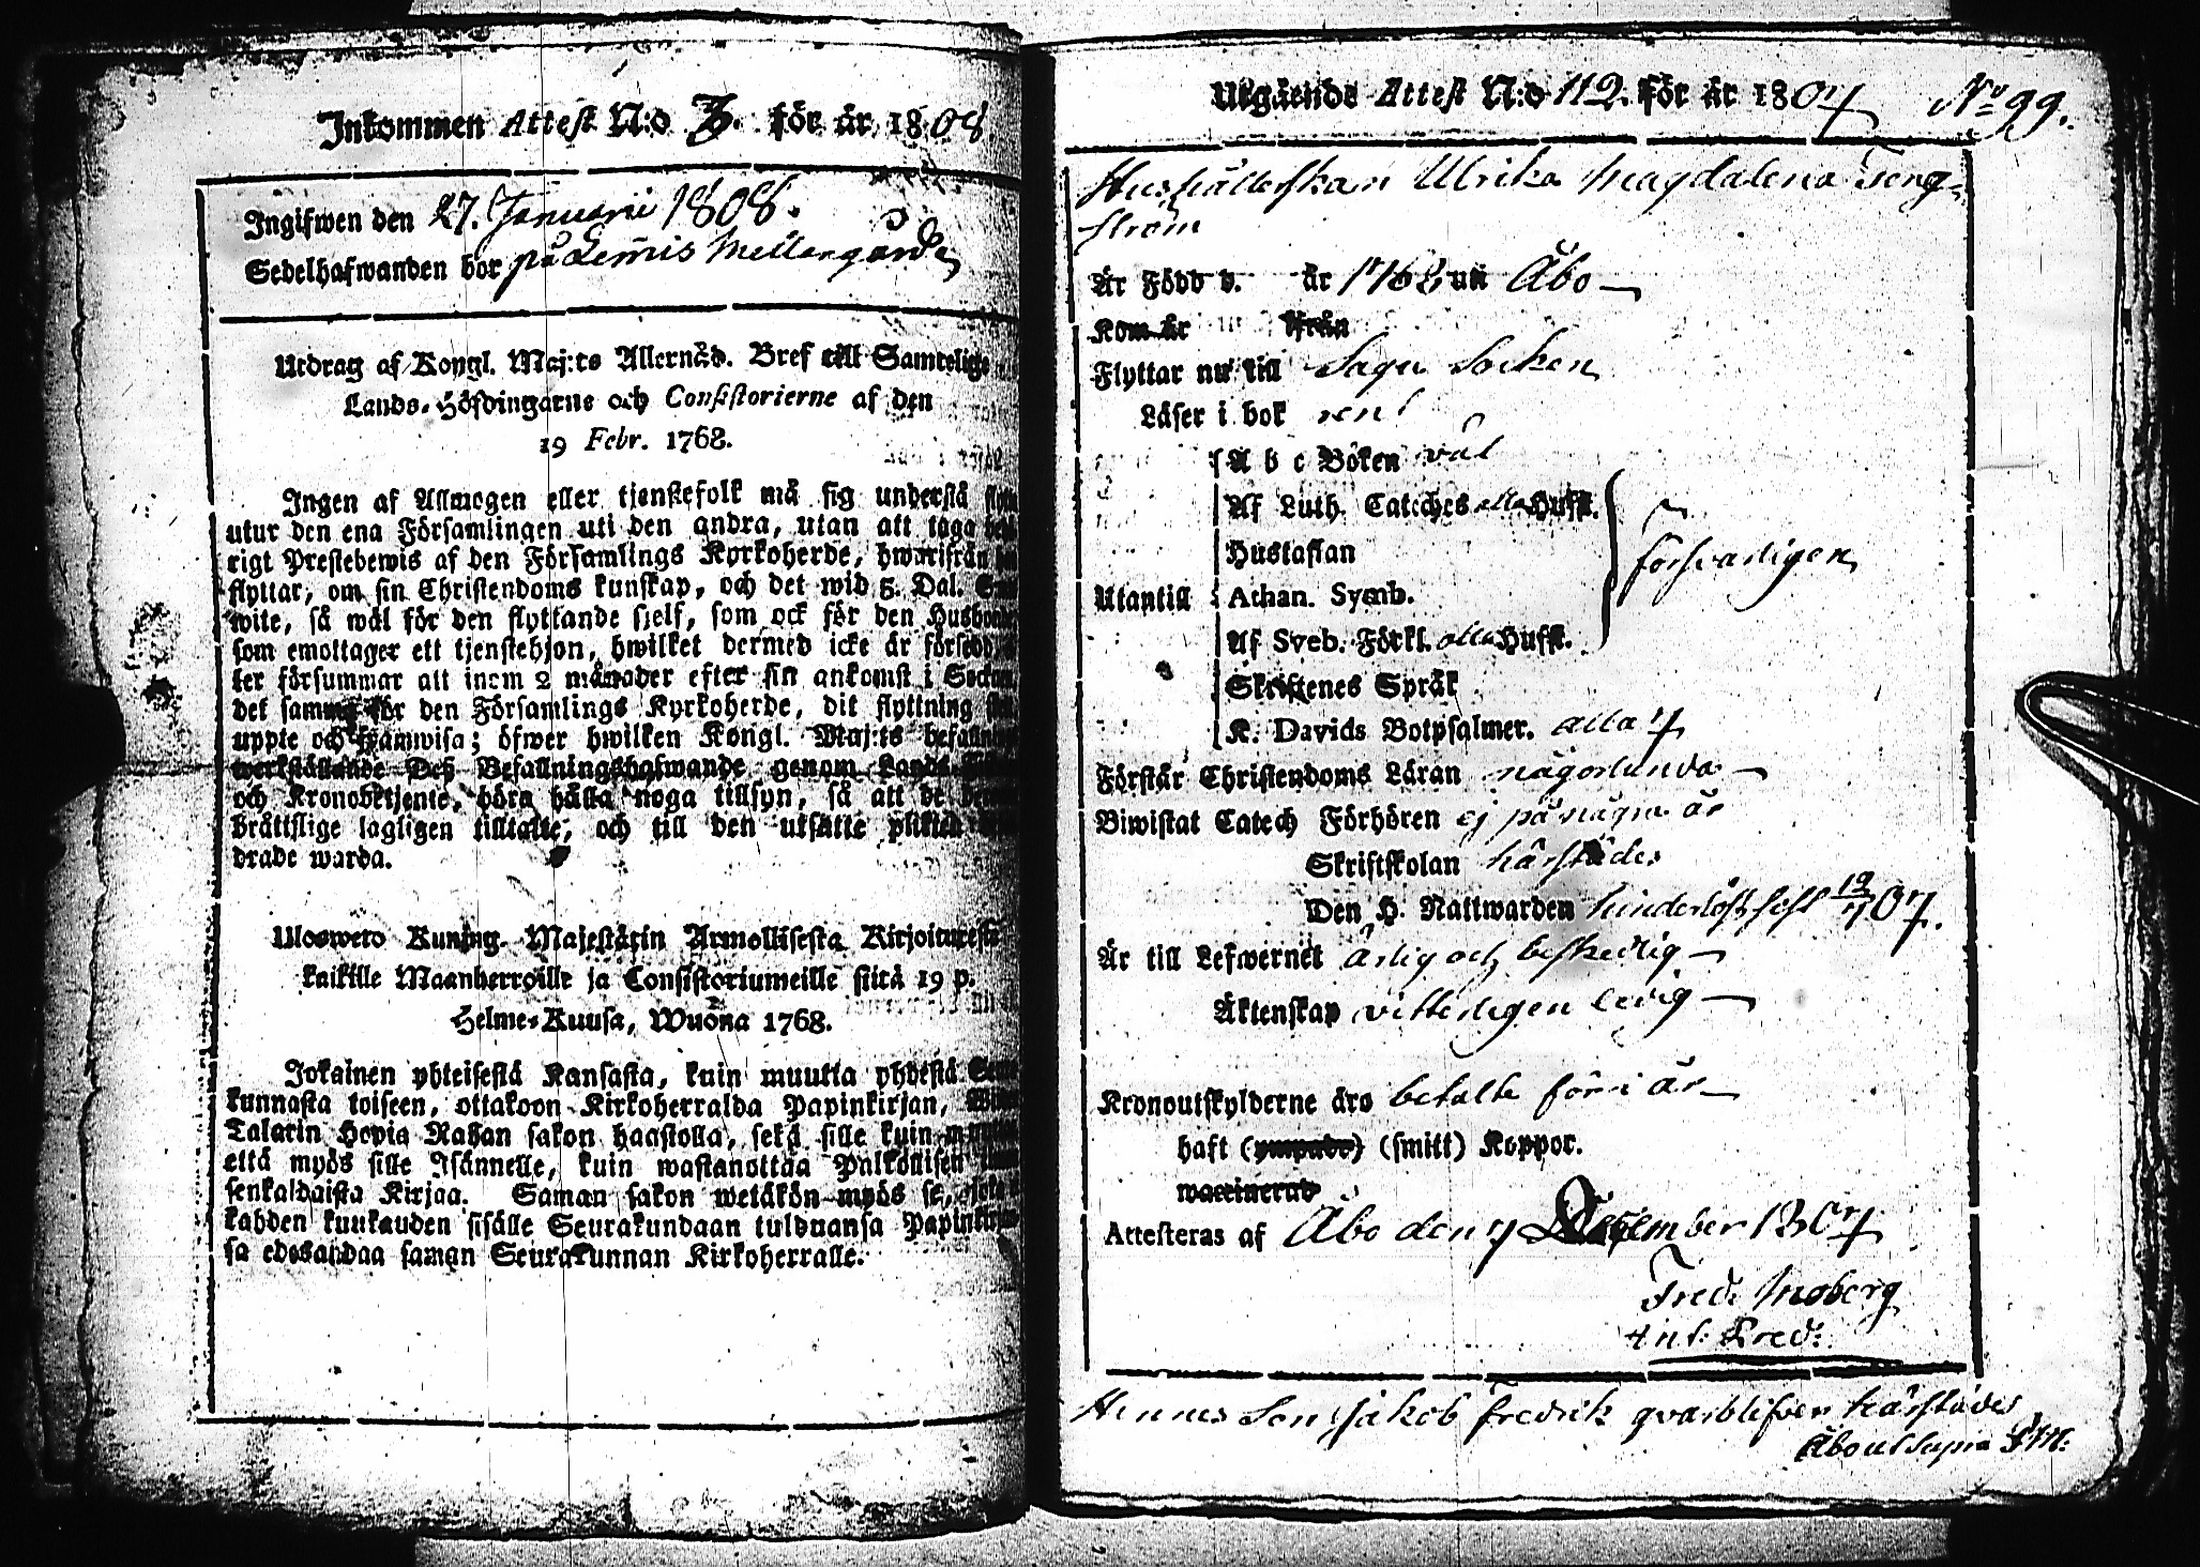 Inkommen Attest N:o 3. för år 1808
Ingifwen den 27. Januarii 1808.
Sedelhafwanden bor på Lemis Mellangårde
Utdrag af Kongl. Maj:ts Allernåd. Bref till Samtelige
Lands-Höfdingarne och Consistorierne af den
19 Febr. 1768.
Ingen af Allmogen eller tjenstefolk må sig understå
utur den ena Församlingen uti den andra, utan att taga
rigt Prestebewis af den Församlings Kyrkoherde, hwarifrån
flyttar, om sin Christendoms kunskap, och det wid 5. Dal.
wite, så wäl för den flyttande sjelf, som ock för den
som emottager ett tjenstehjon, hwilket dermed icke är försedd,
ler försummar att inom 2 månader efter sin ankomst i
det samma för den Församlings Kyrkoherde, dit flyttning
uppte och framwisa; öfwer hwilken Kongl. Maj:ts
werkställande Dess Befallningshafwande genom
och Kronobetjente, böra hålla noga tillsyn, så att de
brättslige lagligen tilltalte, och till den utsatte plikten
drade warda.
Ulosweto Kuning. Majestätin Armollisesta Kirjoituxesta
kaikille Maanherroille ja Consistoriumeille siitä 19 p.
Helme-Kuusa, Wuonna 1768.
Jokainen yhteisestä Kansasta, kuin muutta yhdestä
kunnasta toiseen, ottakoon Kirkoherralda Papinkirjan,
Talarin Hopia Rahan sakon haastolla, sekä sille kuin
että myös sille Isännelle, kuin wastanottaa Palkollisen
senkaldaista Kirjaa. Saman sakon wetäkön myös se,
kahden kuukauden sisälle Seurakundaan tulduansa
sa edesandaa saman Seurakunnan Kirkoherralle.
Utgående Attest N:o 112. för år 1807 No 99.
Hushållerskan Ulrika Magdalena Teng-
ström
Är Född d. år 1768 uti Åbo
Kom år ifrån
Flyttar nu till Sagu Socken
Läser i bok rent
A b c Boken väl
Af Luth. Cateches alla Hufst.
Hustaflan
försvarligen
Utantill Athan. Symb.
Af Sveb. Förkl. alla Hufst.
Skriftenes Språk
K. Davids Botpsalmer. alla 7
Förstår Christendoms Läran någorlunda
Biwistat Catech Förhören ej på några år
Skriftskolan härstädes
Den H. Nattwarden hinderlöst sist 19/7 07.
Är till Lefwernet ärlig och beskedlig
Äktenskap vitterligen ledig
Kronoutskylderne äro betalte för i år
haft (ympade) (smitt) Koppor.
waccinerad
Attesteras af Åbo den 7 December 1807
Fred. Moberg
Hennes Son Jakob Fredrik qvarblifver härstädes
Åbo ut supra FM: